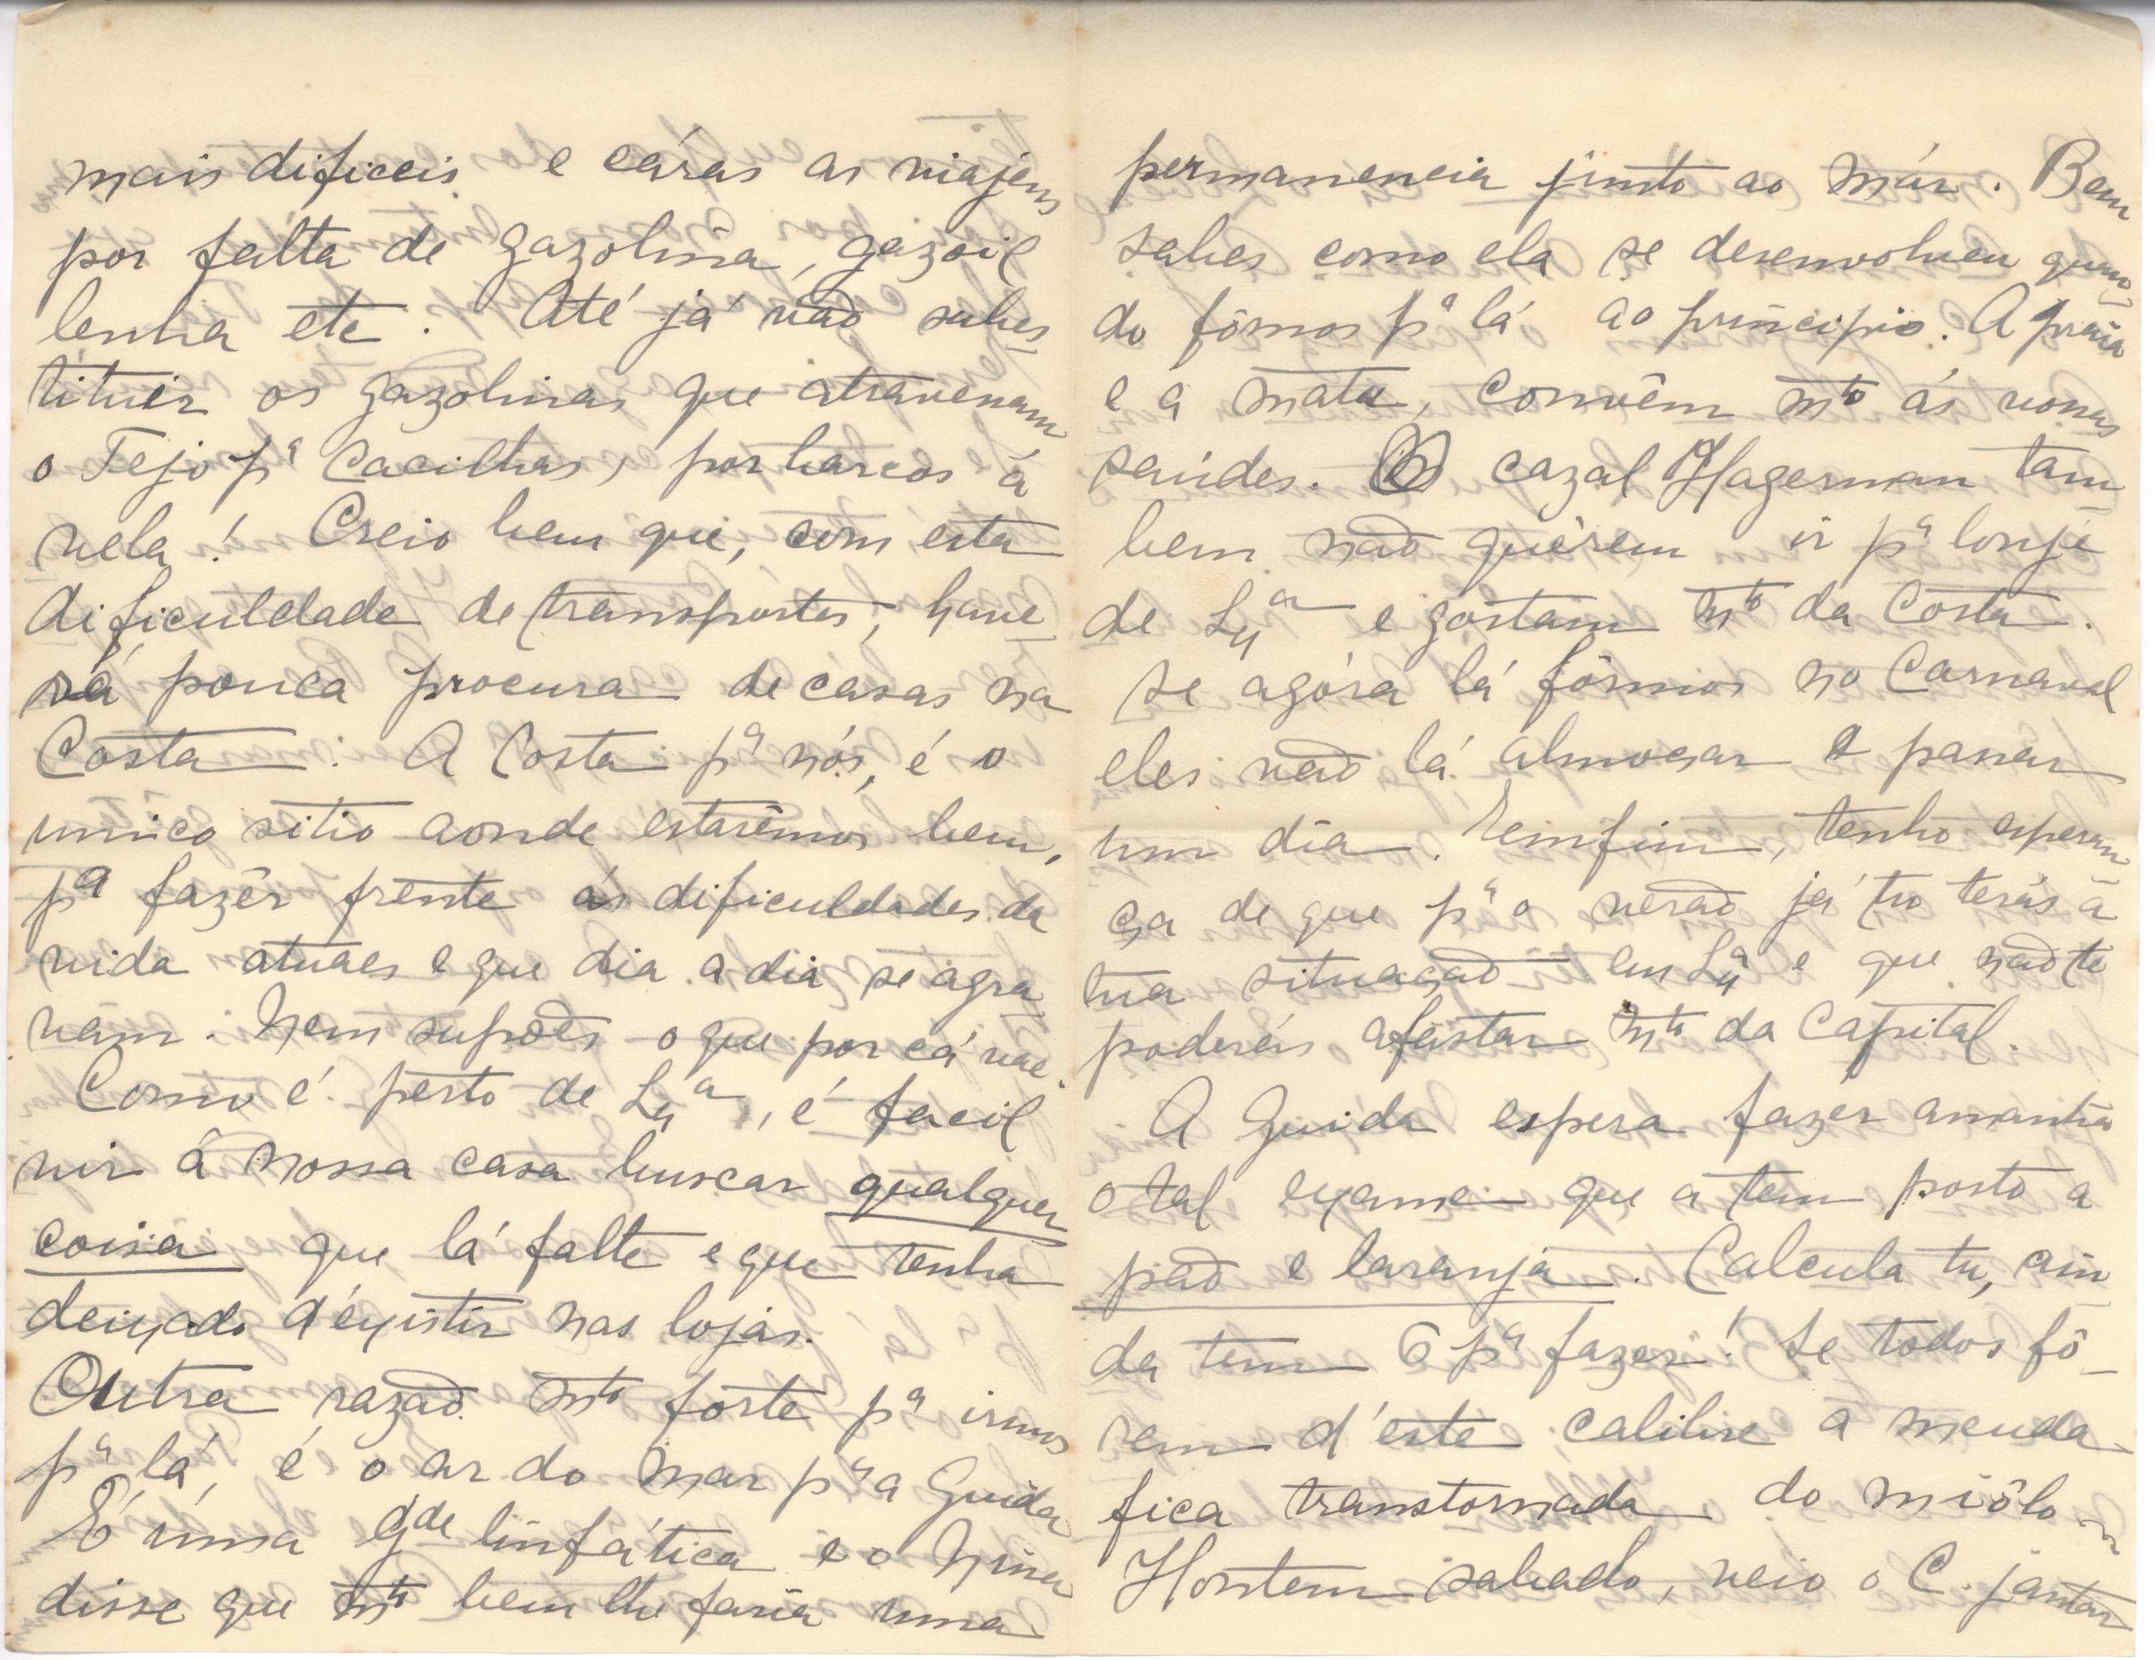 mais dificeis e cáras as viajens
por falta de gazolina, gazoil
lenha etc. Até já vão subs-
tituir os gazolinas que atravessam
o Tejo pª Cacilhas, por barcos á
vela! Creio bem que, com esta
dificuldade de transportes, have-
rá pouca procura de casas na
Costa. A Costa pª nós, é o
unico sitio aonde estarêmos bem,
pª fazêr frente ás dificuldades da
vida atuaes e que dia a dia se agra-
vam. Nem supões o que por cá vae.
Como é perto de Lxª, é facil
vir á nossa casa buscar qualquer
coisa que lá falte e que tenha
deixado d'existir nas lojas.
Outra razão mto forte pª irmos
pª lá, é o ar do mar pª a Guida
É uma gde linfática e o
disse que mto bem lhe faria uma
permanencia junto ao már. Bem
sabes como ela se desenvolveu quan-
do fômos pª lá ao principio. A praia
e a mata, convêm mto ás vossas
saúdes. O cazal Hagerman tam
bem não quérem ir pª longe
de Lxª e gostam mto da Costa.
Se agóra lá fôrmos no Carnaval
eles vão lá almoçar e passar
um dia. Emfim, tenho esperan
ça de que pª o verão já tu terás a
tua situação em Lxª e que não te
poderás afastar mto da Capital.
A Guida espera fazêr amanhã
o tal exame que a tem posto a
pão e laranja. Calcula tu, ain
da tem 6 pª fazer! Se todos fô-
rem d'este calibre a meuda
fica transtornada do miôlo
Hontem sabado, veio o C. jantar